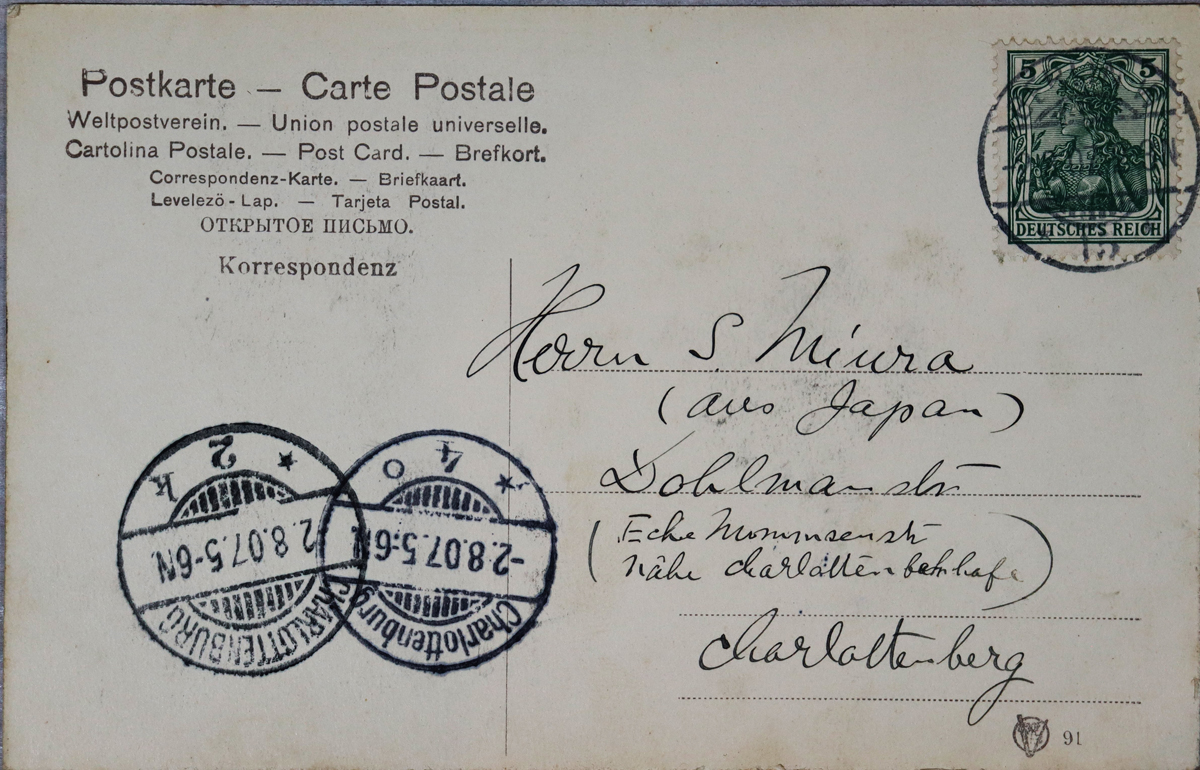 Postkarte — Carte Postale
Weltpostverein. — Union postale universelle.
Cartolina Postale. — Post Card. — Brefkort.
Correspondenz-Karte. — Briefkaart.
Levelező-Lap. — Tarjeta Postal.
ОТКРЫТОЕ ПИСЬМО.
Korrespondenz
5 5
DEUTSCHES REICH
15.
Herrn S. Miura
(aus Japan)
Dahlmannstr
(Ecke Mommsenstr
Nähe Charlottenbahnhofe)
Charlottenberg
CHARLOTTENBURG
2.8.07.5-6N
* 2 k
Charlottenburg
-2.8.07.5-6N
* 4 o
91